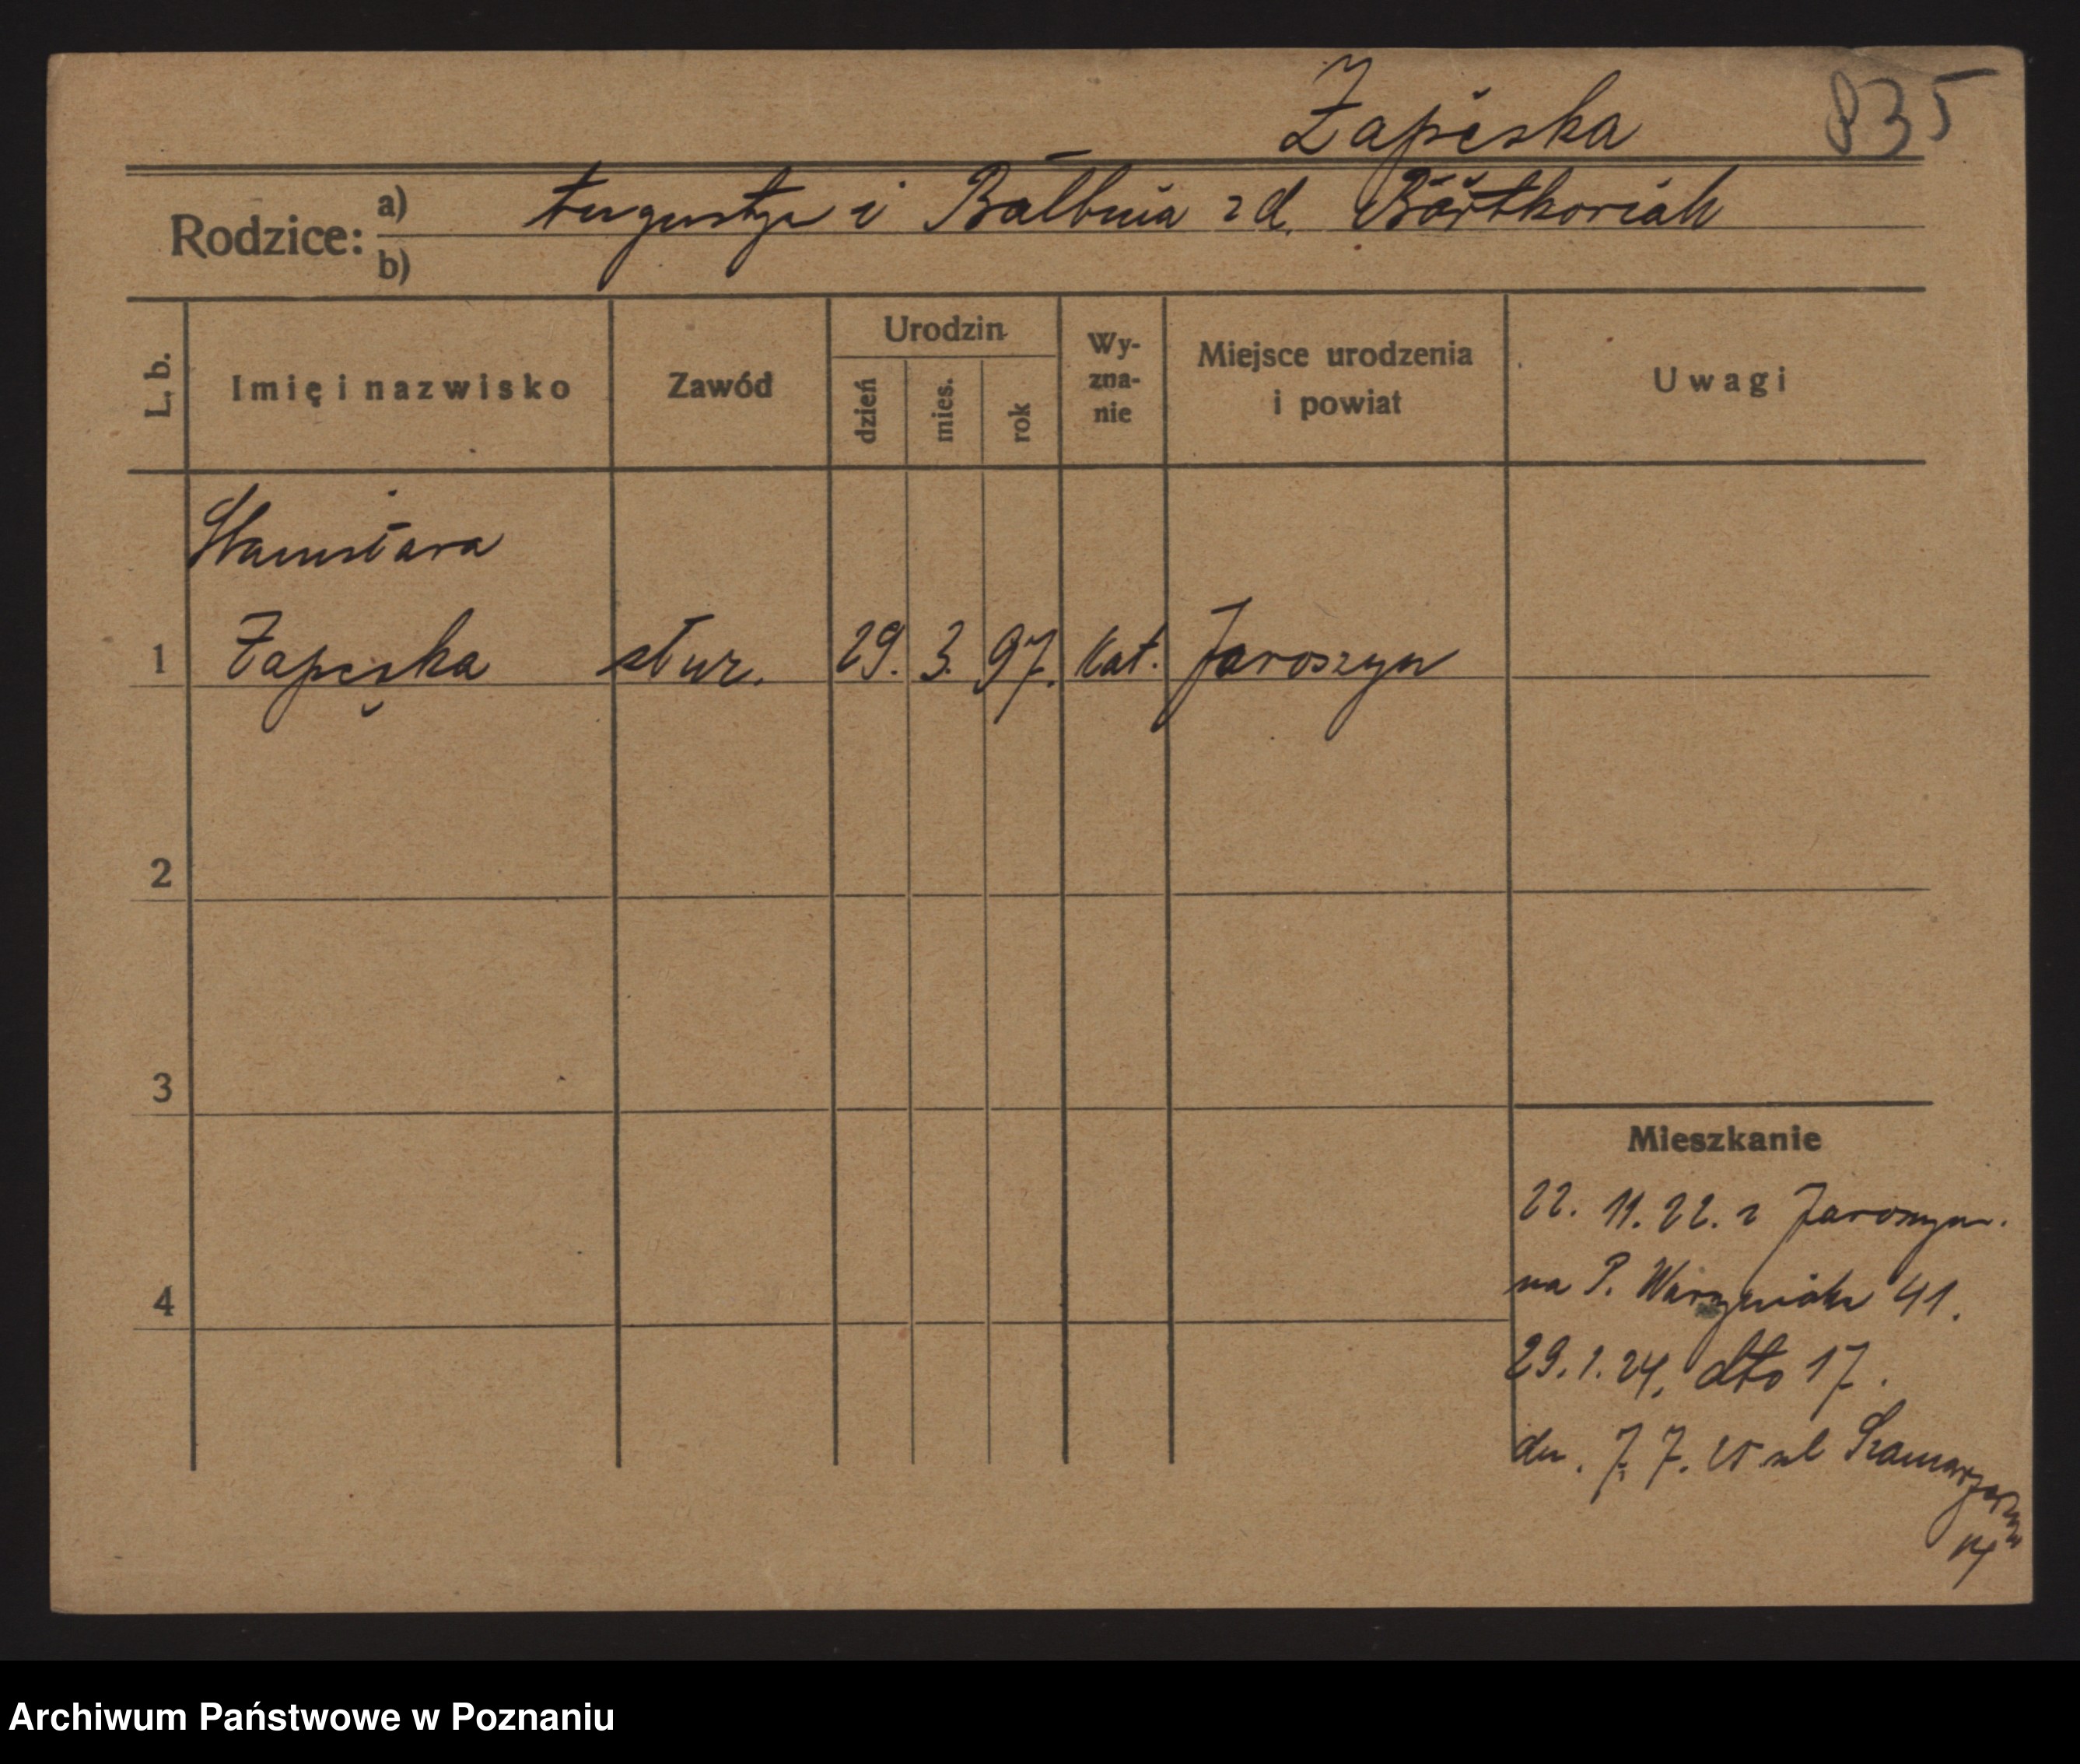 Zapęska
835
Rodzice: a) Augustyn i Balbina zd. Bartkowiak
b)
L. b.
Imię i nazwisko
Zawód
Urodzin
dzień
mies.
rok
Wy-
zna-
nie
Miejsce urodzenia
i powiat
Uwagi
Stanisława
1 Zapęska służ. 29. 3. 97. kat. Jaroszyn
2
3
4
Mieszkanie
22. 11. 22. z Jaroszyn.
na P. 41.
29. 1. 24. dto 17.
dn. 7. 7. 25 ul
Archiwum Państwowe w Poznaniu